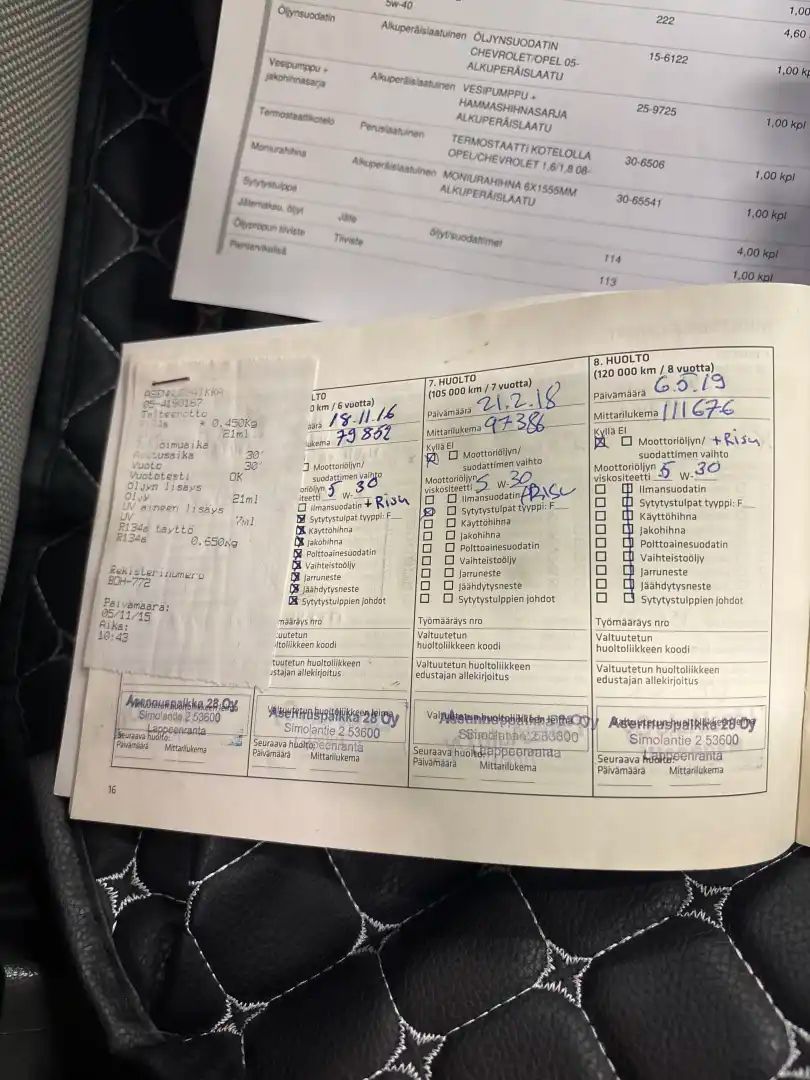 5w-40
222
1,00
4,60
Öljynsuodatin Alkuperäislaatuinen ÖLJYNSUODATIN
CHEVROLET/OPEL 05-
ALKUPERÄISLAATU
15-6122
1,00 kpl
Vesipumppu +
jakohihnasarja
Alkuperäislaatuinen VESIPUMPPU +
HAMMASHIHNASARJA
ALKUPERÄISLAATU
25-9725
1,00 kpl
Termostaattikotelo Peruslaatuinen TERMOSTAATTI KOTELOLLA
OPEL/CHEVROLET 1,6/1,8 08-
30-6506
1,00 kpl
Moniurahihna Alkuperäislaatuinen MONIURAHIHNA 6X1555MM
ALKUPERÄISLAATU
30-65541
1,00 kpl
Sytytystulppa
4,00 kpl
Jätemaksu, öljyt Jäte öljyt/suodattimet
114
1,00 kpl
Öljypropun tiiviste Tiiviste
113
Pientarvikelisä
ASENNUSPAIKKA
05-4190167
Talteenotto
* 0.450Kg
21ml
30'
Vuoto 30'
Vuototesti OK
Öljyn lisäys
Öljy 21ml
UV aineen lisäys
UV 7ml
R134a täyttö
R134a 0.650Kg
Rekisterinumero
BOH-772
Päivämäärä:
05/11/15
Aika:
10:43
LTO
0 km / 6 vuotta)
äärä 18.11.16
lukema 79852
Moottoriöljyn/
suodattimen vaihto
oriöljyn
siteetti 5 W- 30
Ilmansuodatin + Risu
Sytytystulpat tyyppi: F
Käyttöhihna
Jakohihna
Polttoainesuodatin
Vaihteistoöljy
Jarruneste
Jäähdytysneste
Sytytystulppien johdot
määräys nro
uutetun
ltoliikkeen koodi
tuutetun huoltoliikkeen
stajan allekirjoitus
7. HUOLTO
(105 000 km / 7 vuotta)
Päivämäärä 21.2.18
Mittarilukema 97386
Kyllä Ei
Moottoriöljyn/
suodattimen vaihto
Moottoriöljyn
viskositeetti 5 W- 30
Ilmansuodatin + Risu
Sytytystulpat tyyppi: F
Käyttöhihna
Jakohihna
Polttoainesuodatin
Vaihteistoöljy
Jarruneste
Jäähdytysneste
Sytytystulppien johdot
Työmääräys nro
Valtuutetun
huoltoliikkeen koodi
Valtuutetun huoltoliikkeen
edustajan allekirjoitus
8. HUOLTO
(120 000 km / 8 vuotta)
Päivämäärä 6.5.19
Mittarilukema 111676
Kyllä Ei
Moottoriöljyn/ + Risu
suodattimen vaihto
Moottoriöljyn
viskositeetti 5 W- 30
Ilmansuodatin
Sytytystulpat tyyppi: F
Käyttöhihna
Jakohihna
Polttoainesuodatin
Vaihteistoöljy
Jarruneste
Jäähdytysneste
Sytytystulppien johdot
Työmääräys nro
Valtuutetun
huoltoliikkeen koodi
Valtuutetun huoltoliikkeen
edustajan allekirjoitus
Asennuspaikka 28 Oy
Simolantie 2 53600
Lappeenranta
Seuraava huolto:
Päivämäärä Mittarilukema
Valtuutetun huoltoliikkeen leima
Asennuspaikka 28 Oy
Simolantie 2 53600
Lappeenranta
Seuraava huolto:
Päivämäärä Mittarilukema
Asennuspaikka 28 Oy
Simolantie 2 53600
Lappeenranta
Seuraava huolto:
Päivämäärä Mittarilukema
Asennuspaikka 28 Oy
Simolantie 2 53600
Lappeenranta
Seuraava huolto:
Päivämäärä Mittarilukema
16